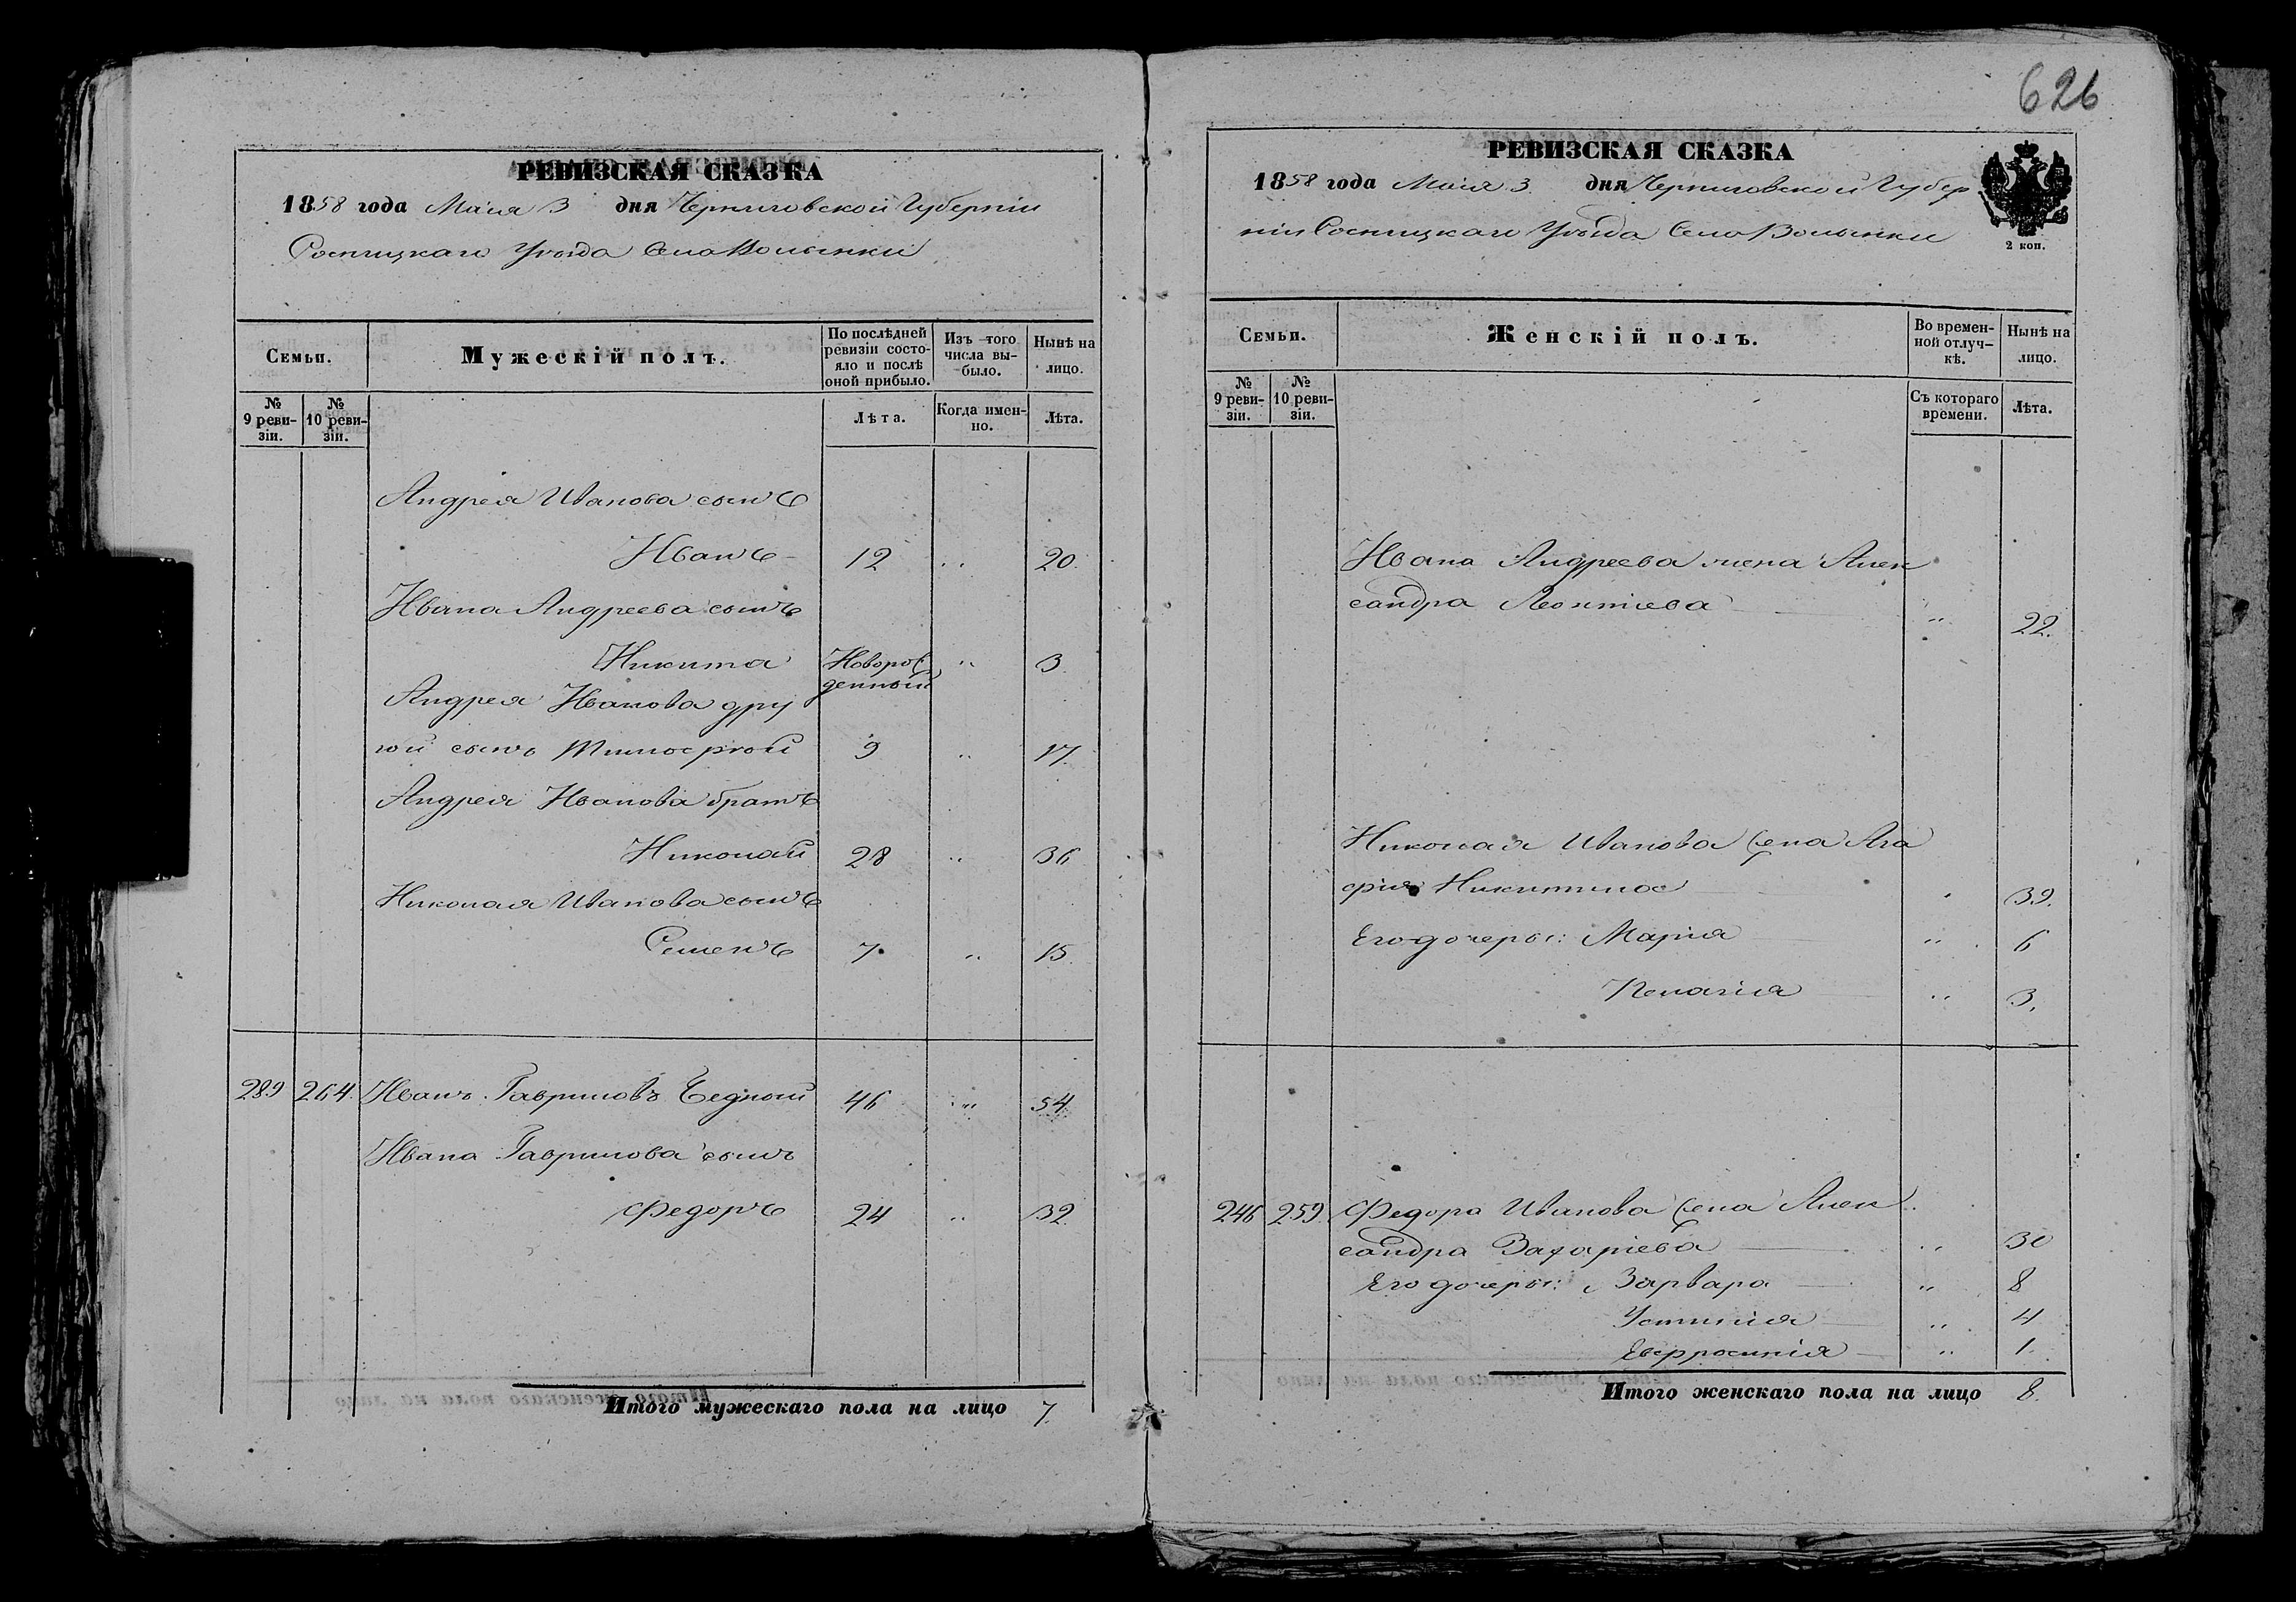 626
РЕВИЗСКАЯ СКАЗКА
1858 года Маія 3 дня Черниговской Губерніи
Сосницкаго Уѣзда Села Волынки
Семьи.
Мужескій полъ.
По послѣдней ревизіи состояло и послѣ оной прибыло.
Изъ того числа выбыло.
Нынѣ на лицо.
№ 9 ревизіи.
№ 10 ревизіи.
Лѣта.
Когда именно.
Лѣта.
Андрея Иванова сынъ
Иванъ 12 „ 20.
Ивана Андреева сынъ
Никита Новорожденный „ 3
Андрея Иванова дру
гой сынъ Тимофей 9 „ 17.
Андрея Иванова братъ
Николай 28 „ 36
Николая Иванова сынъ
Семенъ 7. „ 15.
289 264. Иванъ Гавриловъ Бедный 46 „ 54
Ивана Гаврилова сынъ
Федоръ 24 „ 32.
Итого мужескаго пола на лицо 7.
РЕВИЗСКАЯ СКАЗКА
1858 года Маія 3 дня Черниговской Губер
ніи Сосницкаго Уѣзда Села Волынки
2 коп.
Семьи.
Женскій полъ.
Во временной отлучкѣ.
Нынѣ на лицо.
№ 9 ревизіи.
№ 10 ревизіи.
Съ котораго времени.
Лѣта.
Ивана Андреева жена Алек
сандра Леонтіева „ 22.
Николая Иванова жена Ага
фія Никитина „ 39.
Его дочеры: Марія „ 6
Пелагія „ 3.
246 259. Федора Иванова жена Алек
сандра Захаріева „ 30
Его дочеры: Варвара „ 8
Устинія „ 4
Евфросинія „ 1.
Итого женскаго пола на лицо 8.